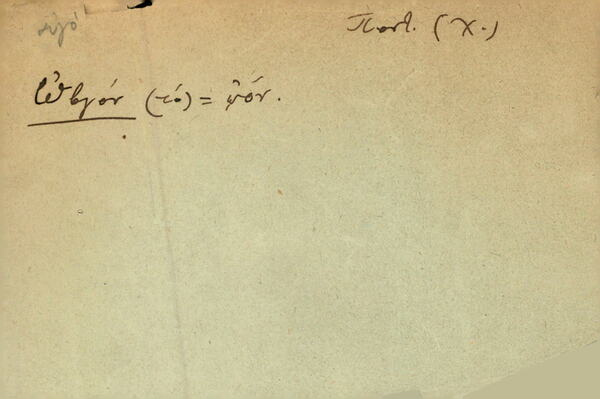 αυγό
Ποντ. (Χ.)
Ὠβγόν (τό) = ᾠόν.